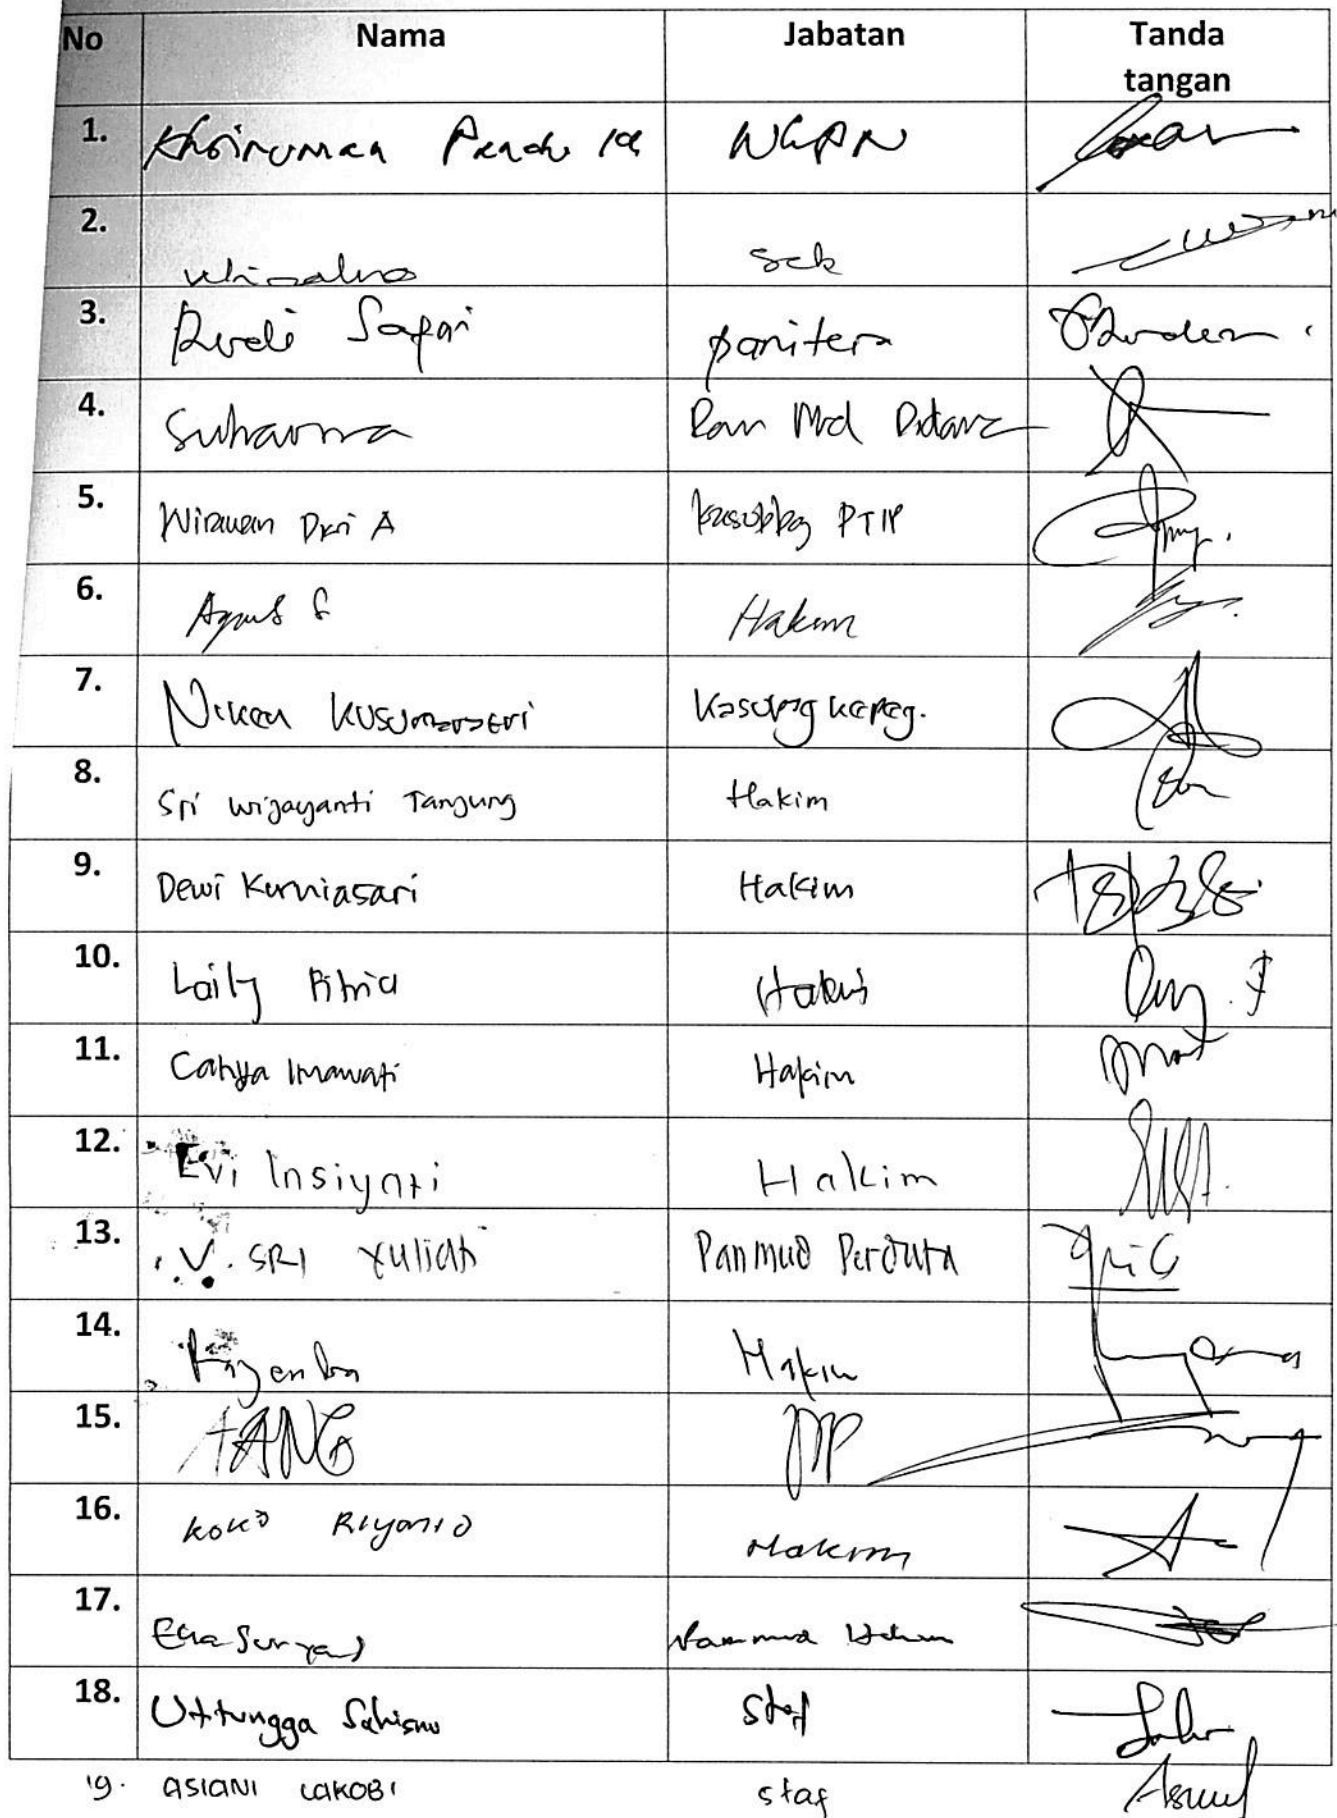 No Nama Jabatan Tanda
tangan
1. WKPN
2. Sek
3. Rudi Safari panitera
4. Suharna Pan Mud Pidana
5. Wirawan Dwi A Kasubbag PTIP
6. Agus S Hakim
7. Niken Kusumawati Kasubag kepeg.
8. Sri Wijayanti Tanjung Hakim
9. Dewi Kurniasari Hakim
10. Laily Fitria Hakim
11. Cahya Imawati Hakim
12. Evi Insiyati Hakim
13. V. SRI Yuliati Panmud Perdata
14. Hakim
15. TANG PP
16. Koko Riyanto Hakim
17. Panmud Hukum
18. Uttungga Sahisnu Staf
19. ASIANI LAKOBI staf